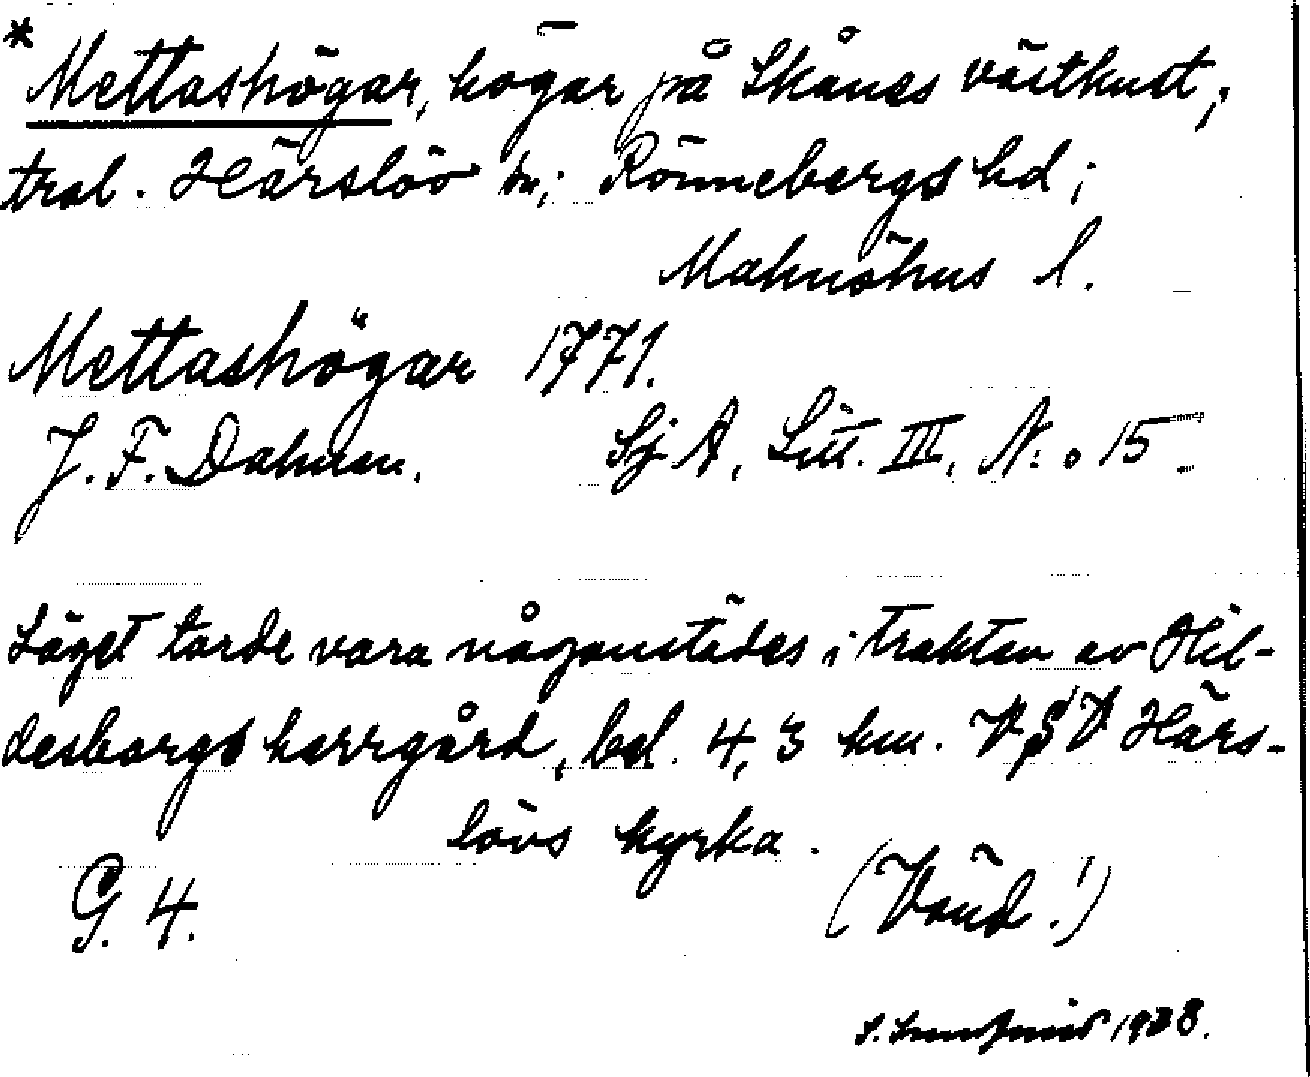 * Mettashögar, högar på Skånes västkust,
trol. Härslöv sn; Rönnebergs hd;
Malmöhus l.
Mettashögar 1771.
J. F. Dahlman. Sj A, Litt. III, N:o 15
Läget torde vara någonstädes i trakten av Hil-
desborgs herrgård, bel. 4,3 km. VSV Härs-
lövs kyrka.
G. 4. (Vänd!)
S. 1928.